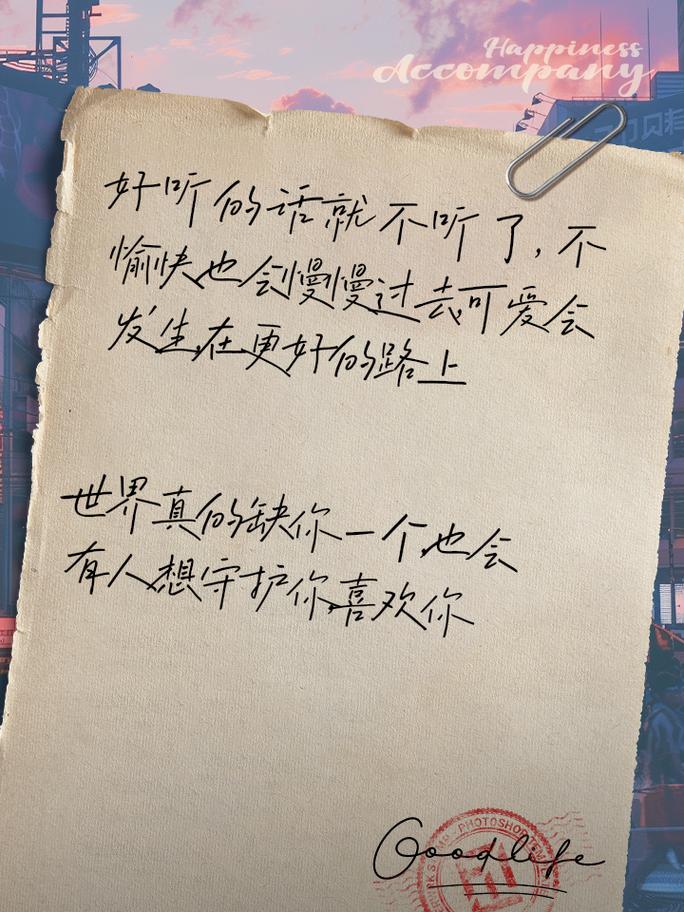 Happiness
Accompany
好听的话就不听了,不
愉快也会慢慢过去,可爱会
发生在更好的路上
世界真的缺你一个,也会
有人想守护你,喜欢你
PHOTOSHOP
Goodlife